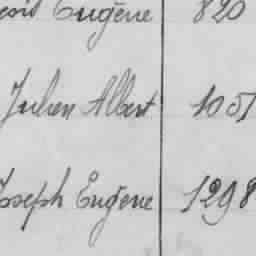 Eugène 820
Julien Albert 1051
Joseph Eugène 1298